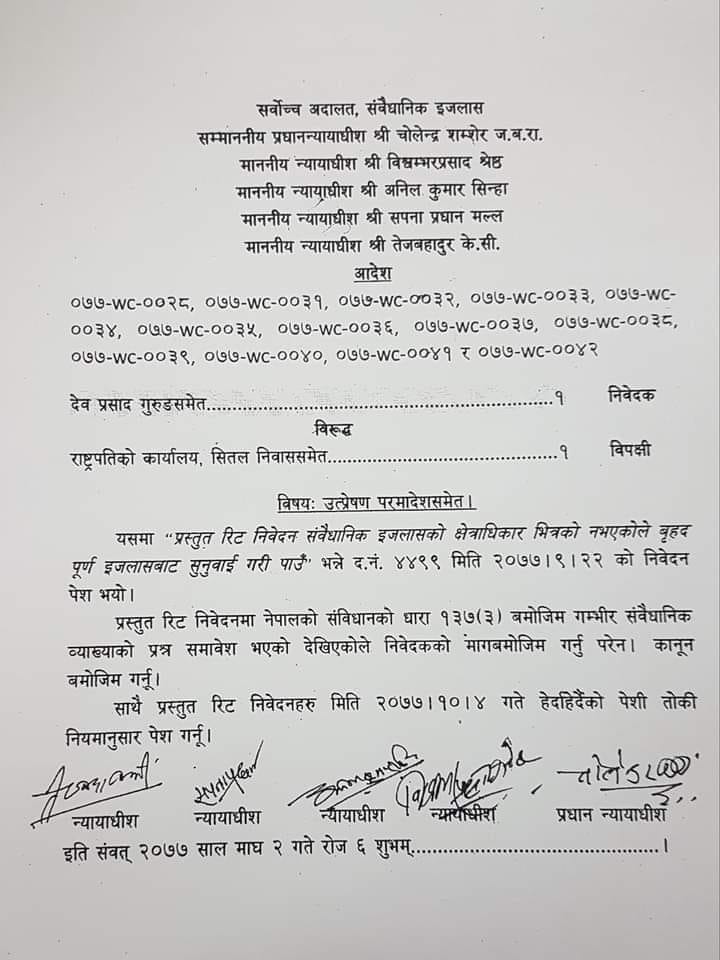 सर्वोच्च अदालत, संवैधानिक इजलास
सम्माननीय प्रधानन्यायाधीश श्री चोलेन्द्र शम्शेर ज.ब.रा.
माननीय न्यायाधीश श्री विश्वम्भरप्रसाद श्रेष्ठ
माननीय न्यायाधीश श्री अनिल कुमार सिन्हा
माननीय न्यायाधीश श्री सपना प्रधान मल्ल
माननीय न्यायाधीश श्री तेजबहादुर के.सी.
आदेश
०७७-WC-००२८, ०७७-WC-००३१, ०७७-WC-००३२, ०७७-WC-००३३, ०७७-WC-
००३४, ०७७-WC-००३५, ०७७-WC-००३६, ०७७-WC-००३७, ०७७-WC-००३८,
०७७-WC-००३९, ०७७-WC-००४०, ०७७-WC-००४१ र ०७७-WC-००४२
देव प्रसाद गुरुङसमेत..........................................................१ निवेदक
विरूद्ध
राष्ट्रपतिको कार्यालय, सितल निवाससमेत.......................................१ विपक्षी
विषयः उत्प्रेषण परमादेशसमेत।
यसमा "प्रस्तुत रिट निवेदन संवैधानिक इजलासको क्षेत्राधिकार भित्रको नभएकोले बृहद
पूर्ण इजलासबाट सुनुवाई गरी पाउँ" भन्ने द.नं. ४४९९ मिति २०७७।९।२२ को निवेदन
पेश भयो।
प्रस्तुत रिट निवेदनमा नेपालको संविधानको धारा १३७(३) बमोजिम गम्भीर संवैधानिक
व्याख्याको प्रश्न समावेश भएको देखिएकोले निवेदकको मागबमोजिम गर्नु परेन। कानून
बमोजिम गर्नू।
साथै प्रस्तुत रिट निवेदनहरु मिति २०७७।१०।४ गते हेर्दाहेर्दैको पेशी तोकी
नियमानुसार पेश गर्नू।
न्यायाधीश न्यायाधीश न्यायाधीश न्यायाधीश प्रधान न्यायाधीश
इति संवत् २०७७ साल माघ २ गते रोज ६ शुभम्..........................................।